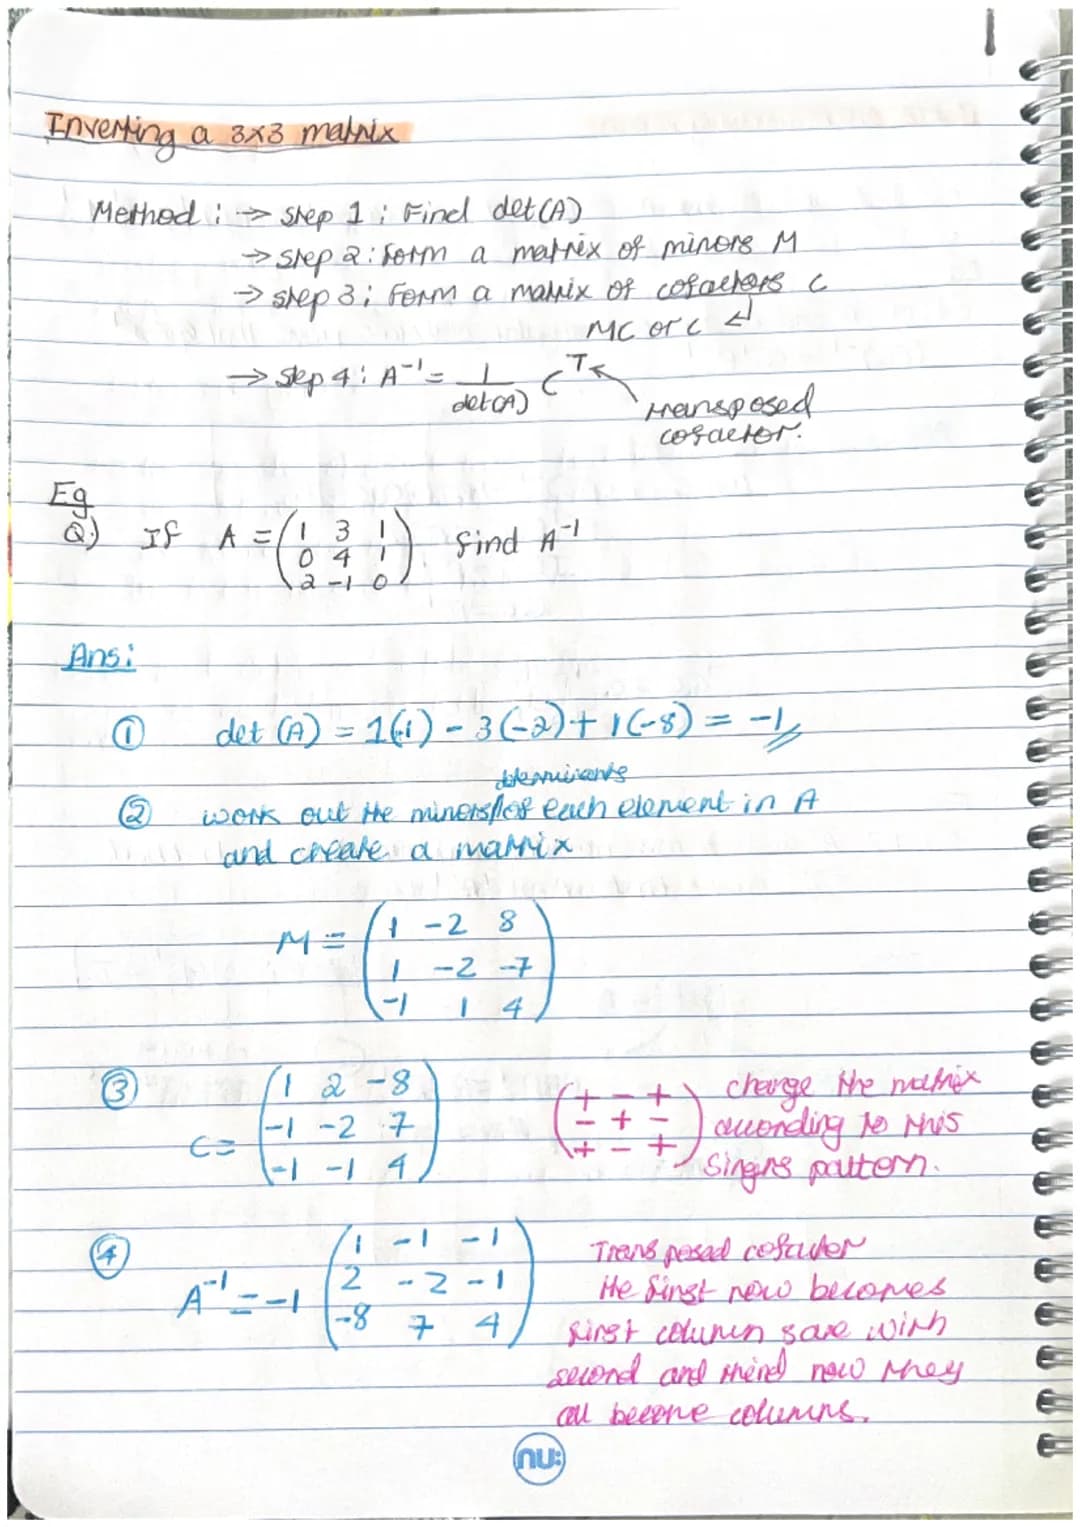 Inverting a 3x3 matrix
Method : → step 1 : Find det(A)
→ step 2 : form a matrix of minors M
→ step 3 : Form a matrix of cofactors C
MC or C ↲
→ step 4 : A⁻¹ = 1/det(A) Cᵀ
transposed
cofactor.
Eg
Q.) If A = (1 3 1
0 4 1
2 -1 0) find A⁻¹
Ans :
① det (A) = 1(1) - 3(-2) + 1(-8) = -1
determinants
② work out the minors/of each element in A
and create a matrix
M = (1 -2 8
1 -2 -7
-1 1 4)
③ C = (1 2 -8
-1 -2 7
-1 -1 4)
(+ - +
- + -
+ - +)
change the matrix
according to this
singns pattern.
④ A⁻¹ = -1 (1 -1 -1
2 -2 -1
-8 7 4)
Transposed cofactor
the first row becomes
first column same with
second and third row they
all become columns.
nu: